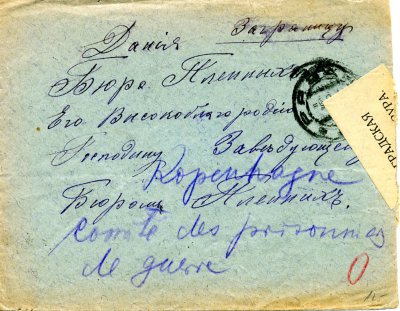 Данія Заграницу
Бюро Плѣнныхъ
Его Высокоблагородію
Господину Завѣдующему
Kopenhagne
Бюромъ Плѣнныхъ.
Comité des prisonniers
de guerre
ГРАДСКАЯ
ЗУРА
0